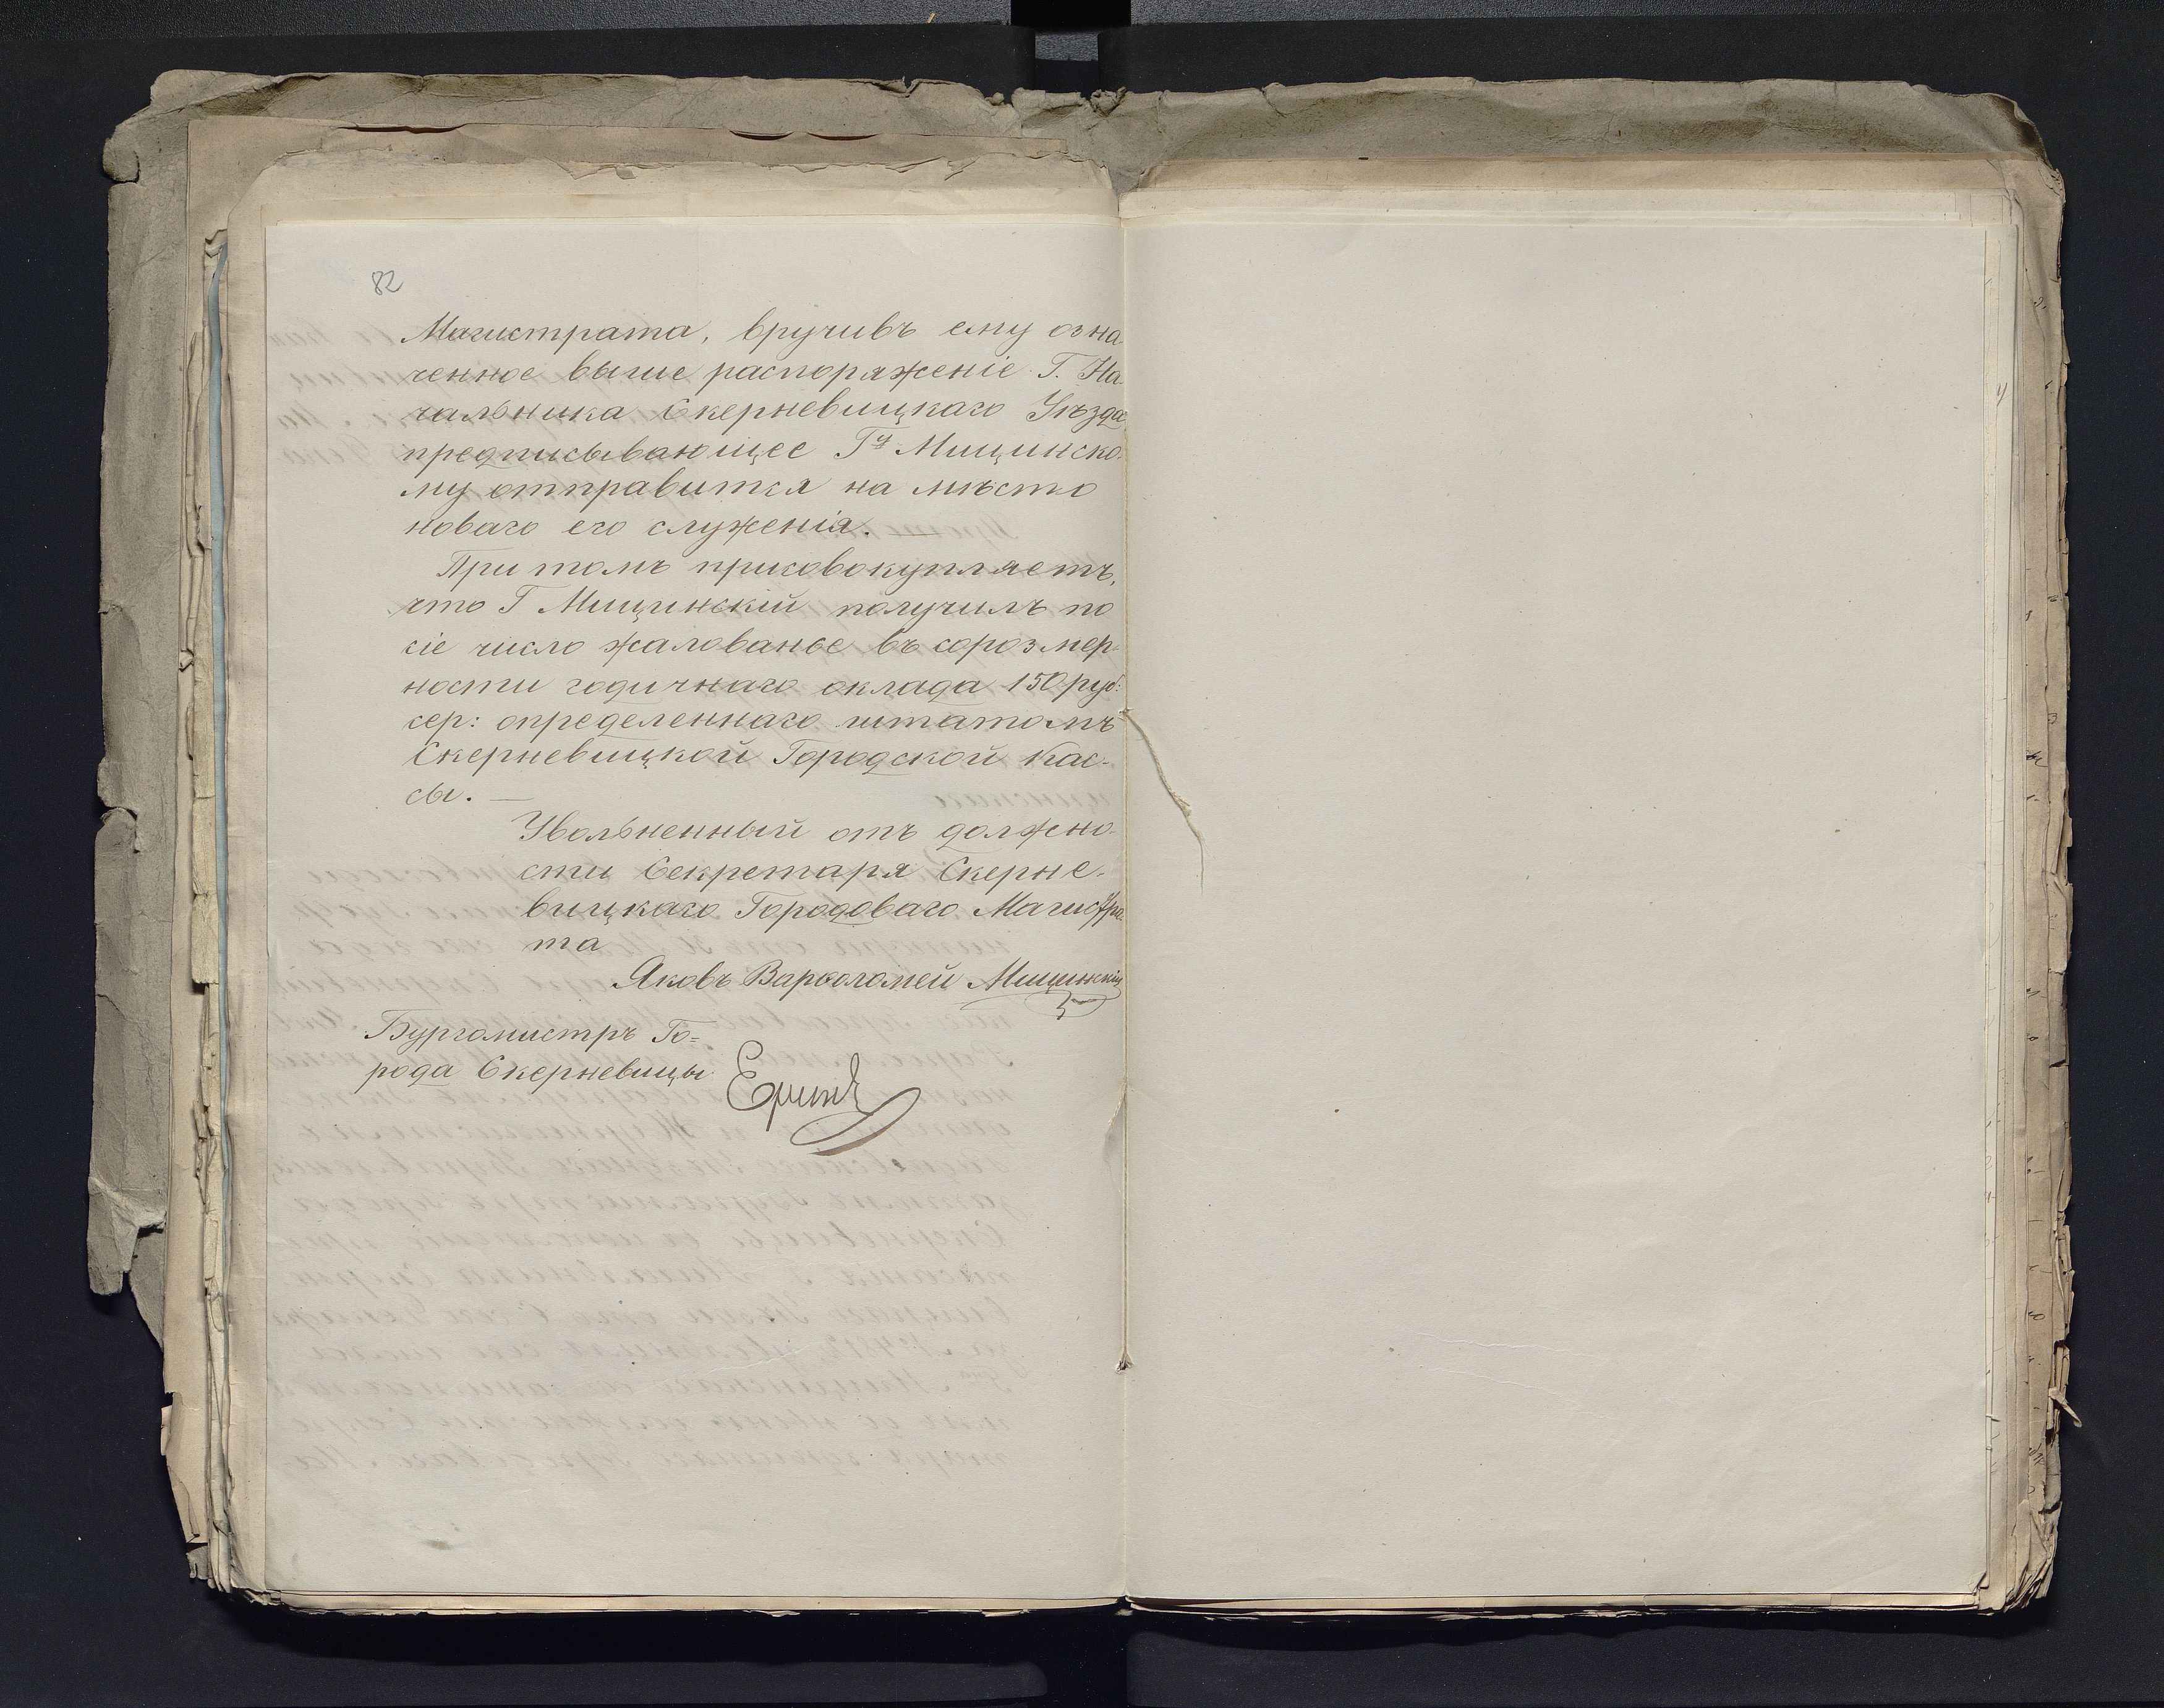 82
Магистрата, вручивъ ему озна-
ченное выше распоряженіе Г. На-
чальника Скерневицкаго Уѣзда
предписывающее Гу Мищинско-
му отправится на мѣсто
новаго его служенія.
При томъ присовокупляетъ,
что Г Мищинскій получилъ по
сіе число жалованье въ соразмер-
ности годичнаго оклада 150 руб:
сер: определеннаго штатомъ
Скерневицкой Городской Кас-
сы. —
Увольненный отъ должно-
сти Секретаря Скерне-
вицкаго Городоваго Магистра-
та
Яковъ Варфоломей Мищинскій
Бургомистръ Го=
рода Скерневицы